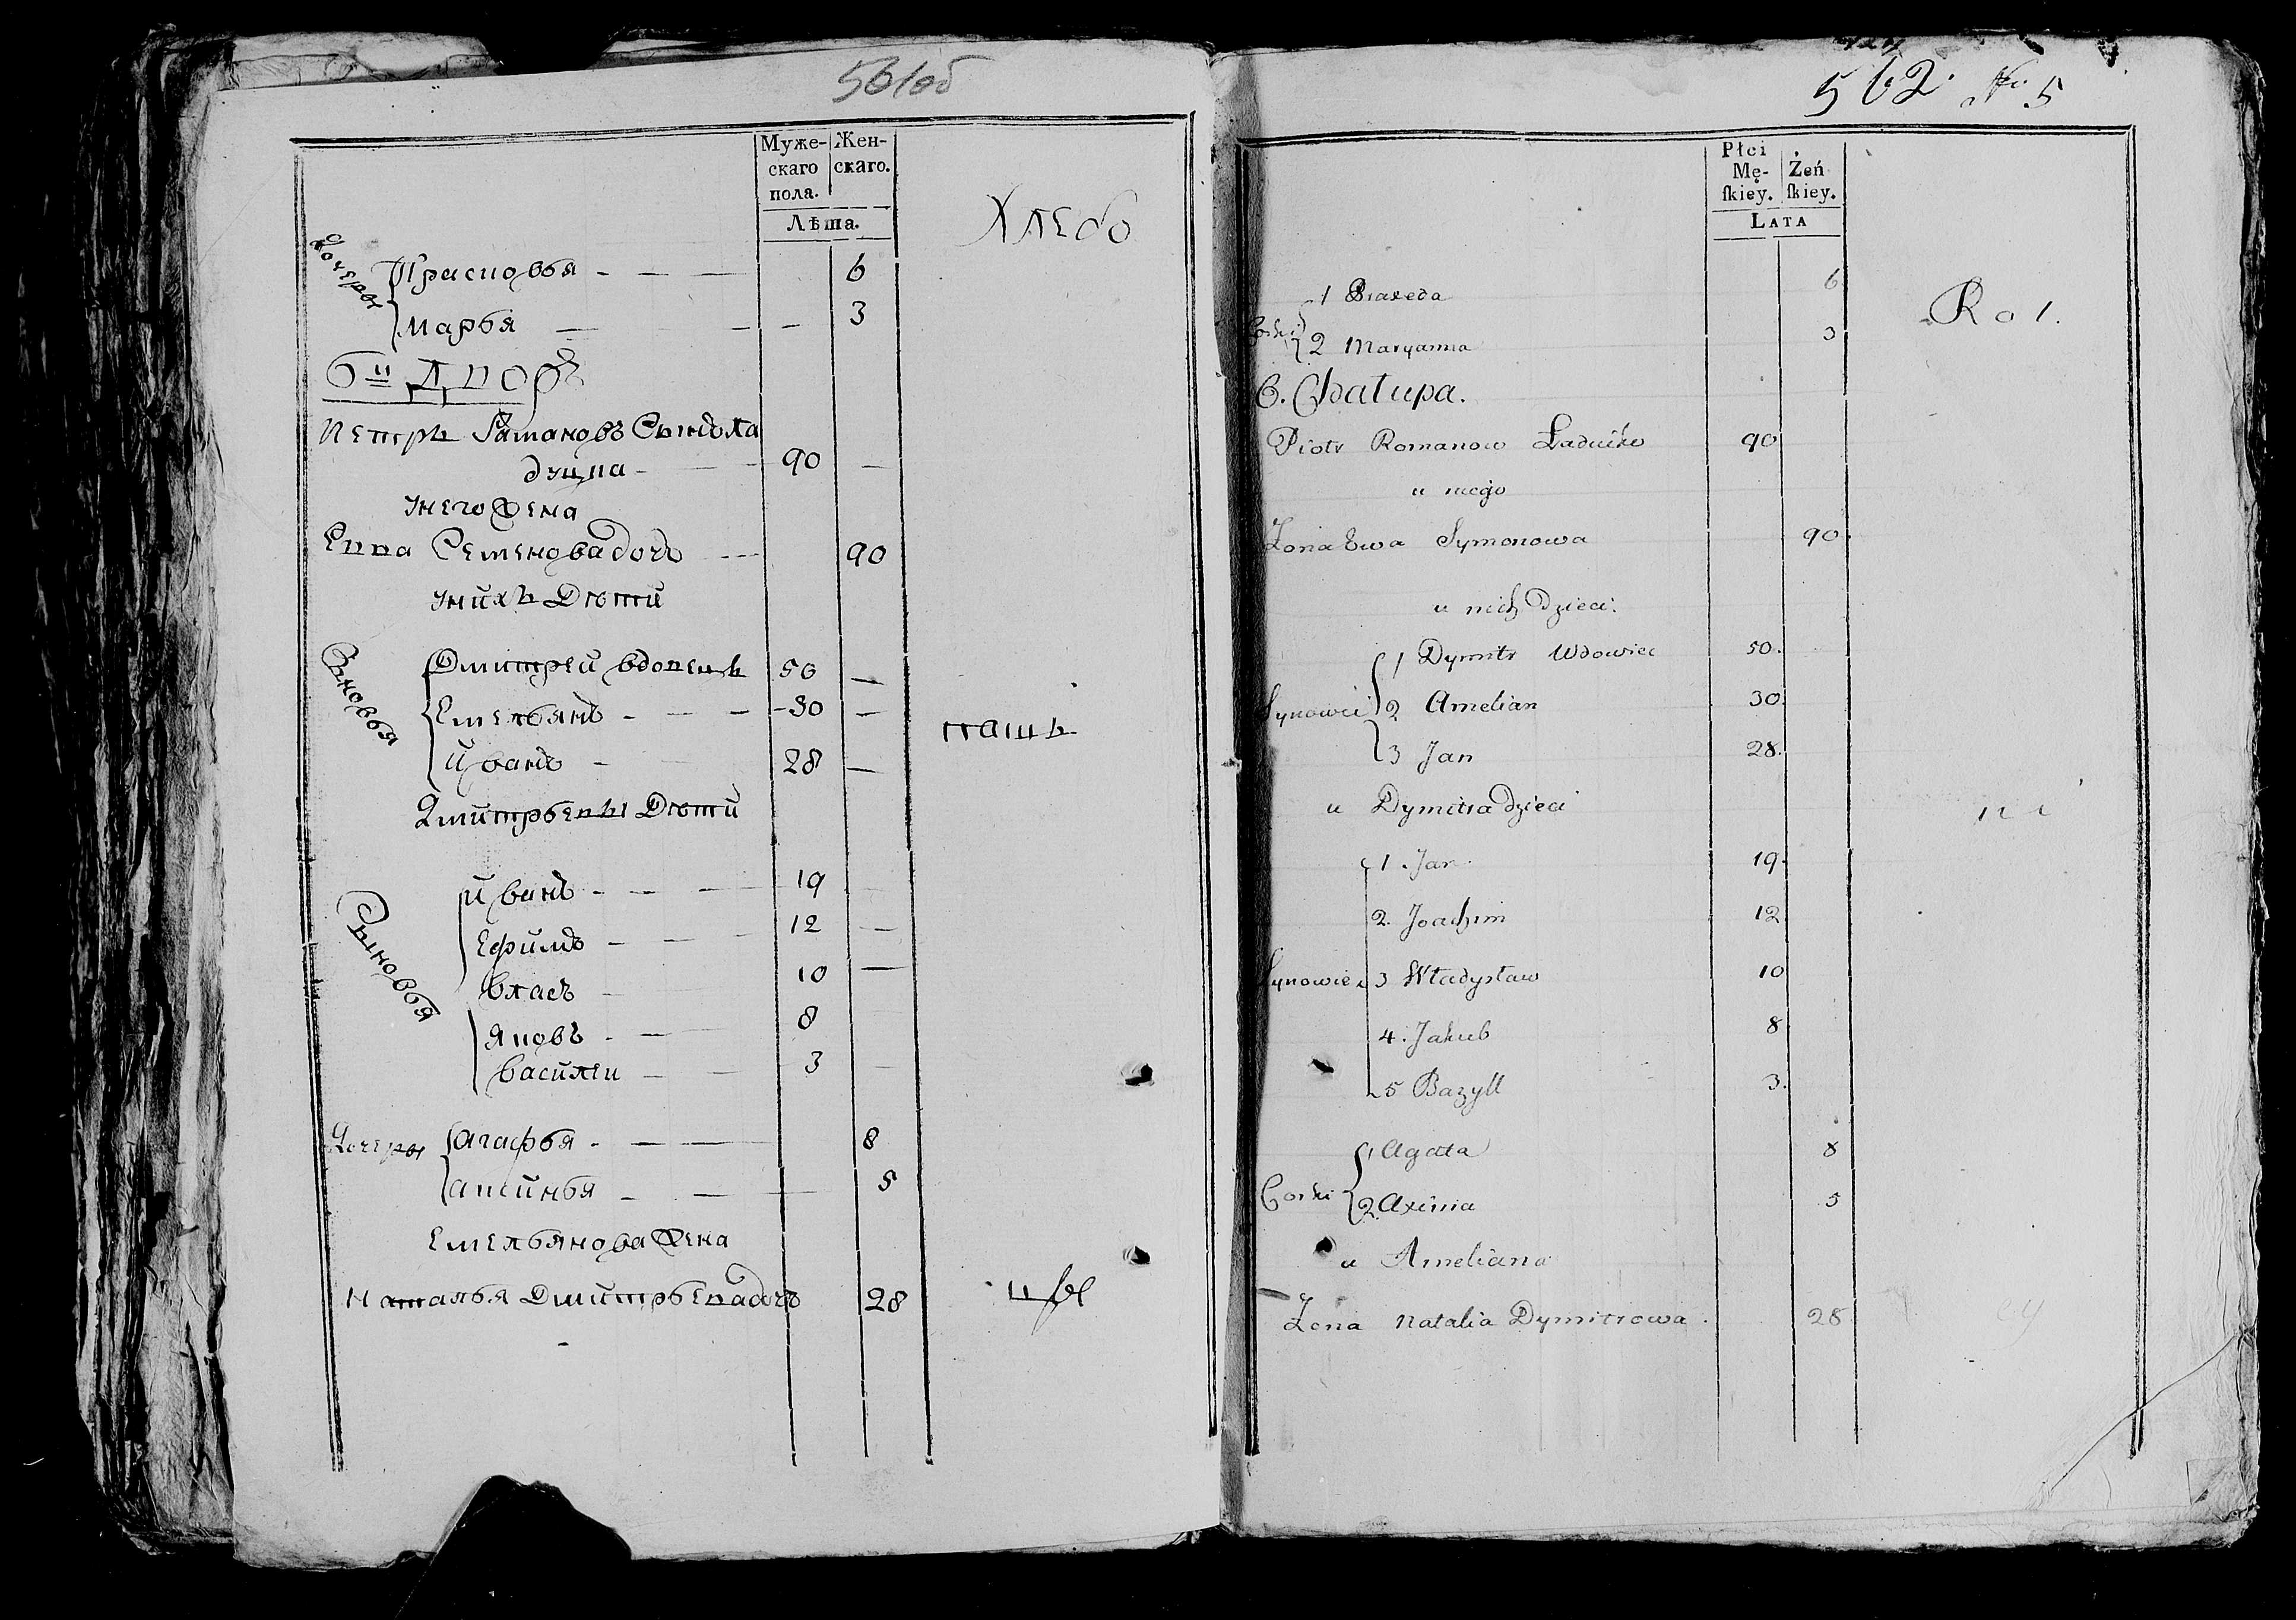 561об
Муже-
скаго
пола.
Жен-
скаго.
Лѣта.
Хлебо
Дочеры
Прасковья - — — 6
Марья — - - 3
6й Дворъ
Петръ Рамановъ Сынъ Ла
дутка - — 90 —
унего жена
Евва Семеновадочь --- 90
унихъ Дѣти
Сыновья
Дмитрей вдовецъ 50 —
Емельянъ - — - 30 —
Иванъ - 28 —
пашъ
Дмитревы Дѣти
Сыновья
Иванъ - — — 19
Ефимъ - — - 12 —
Власъ - 10 —
Яковъ - — 8
Василеи — - 3 —
Дочеры
Агафья - — — 8
Аксинья - — — 5
Емельянова жена
Наталья Дмитревадочь 28
цы
562. No 5
Płci
Mę-
ſkiey.
Żeń
ſkiey.
LATA
Rol.
Corki
1 Praxeda 6
2 Maryanna 3
6. Chałupa.
Piotr Romanow Ładućko 90
u niego
Zona Ewa Symonowa 90.
u nich Dzieci.
Synowie
1 Dymitr Wdowiec 50.
2 Amelian 30.
3 Jan 28.
u Dymitra dzieci
ni
Synowie
1. Jan. 19.
2. Joachim 12.
3 Władysław 10
4. Jakub 8
5 Bazyli 3.
Corki
1 Agata 8
2. Axinia 5
u Ameliana
Zona Natalia Dymitrowa. 28
cy